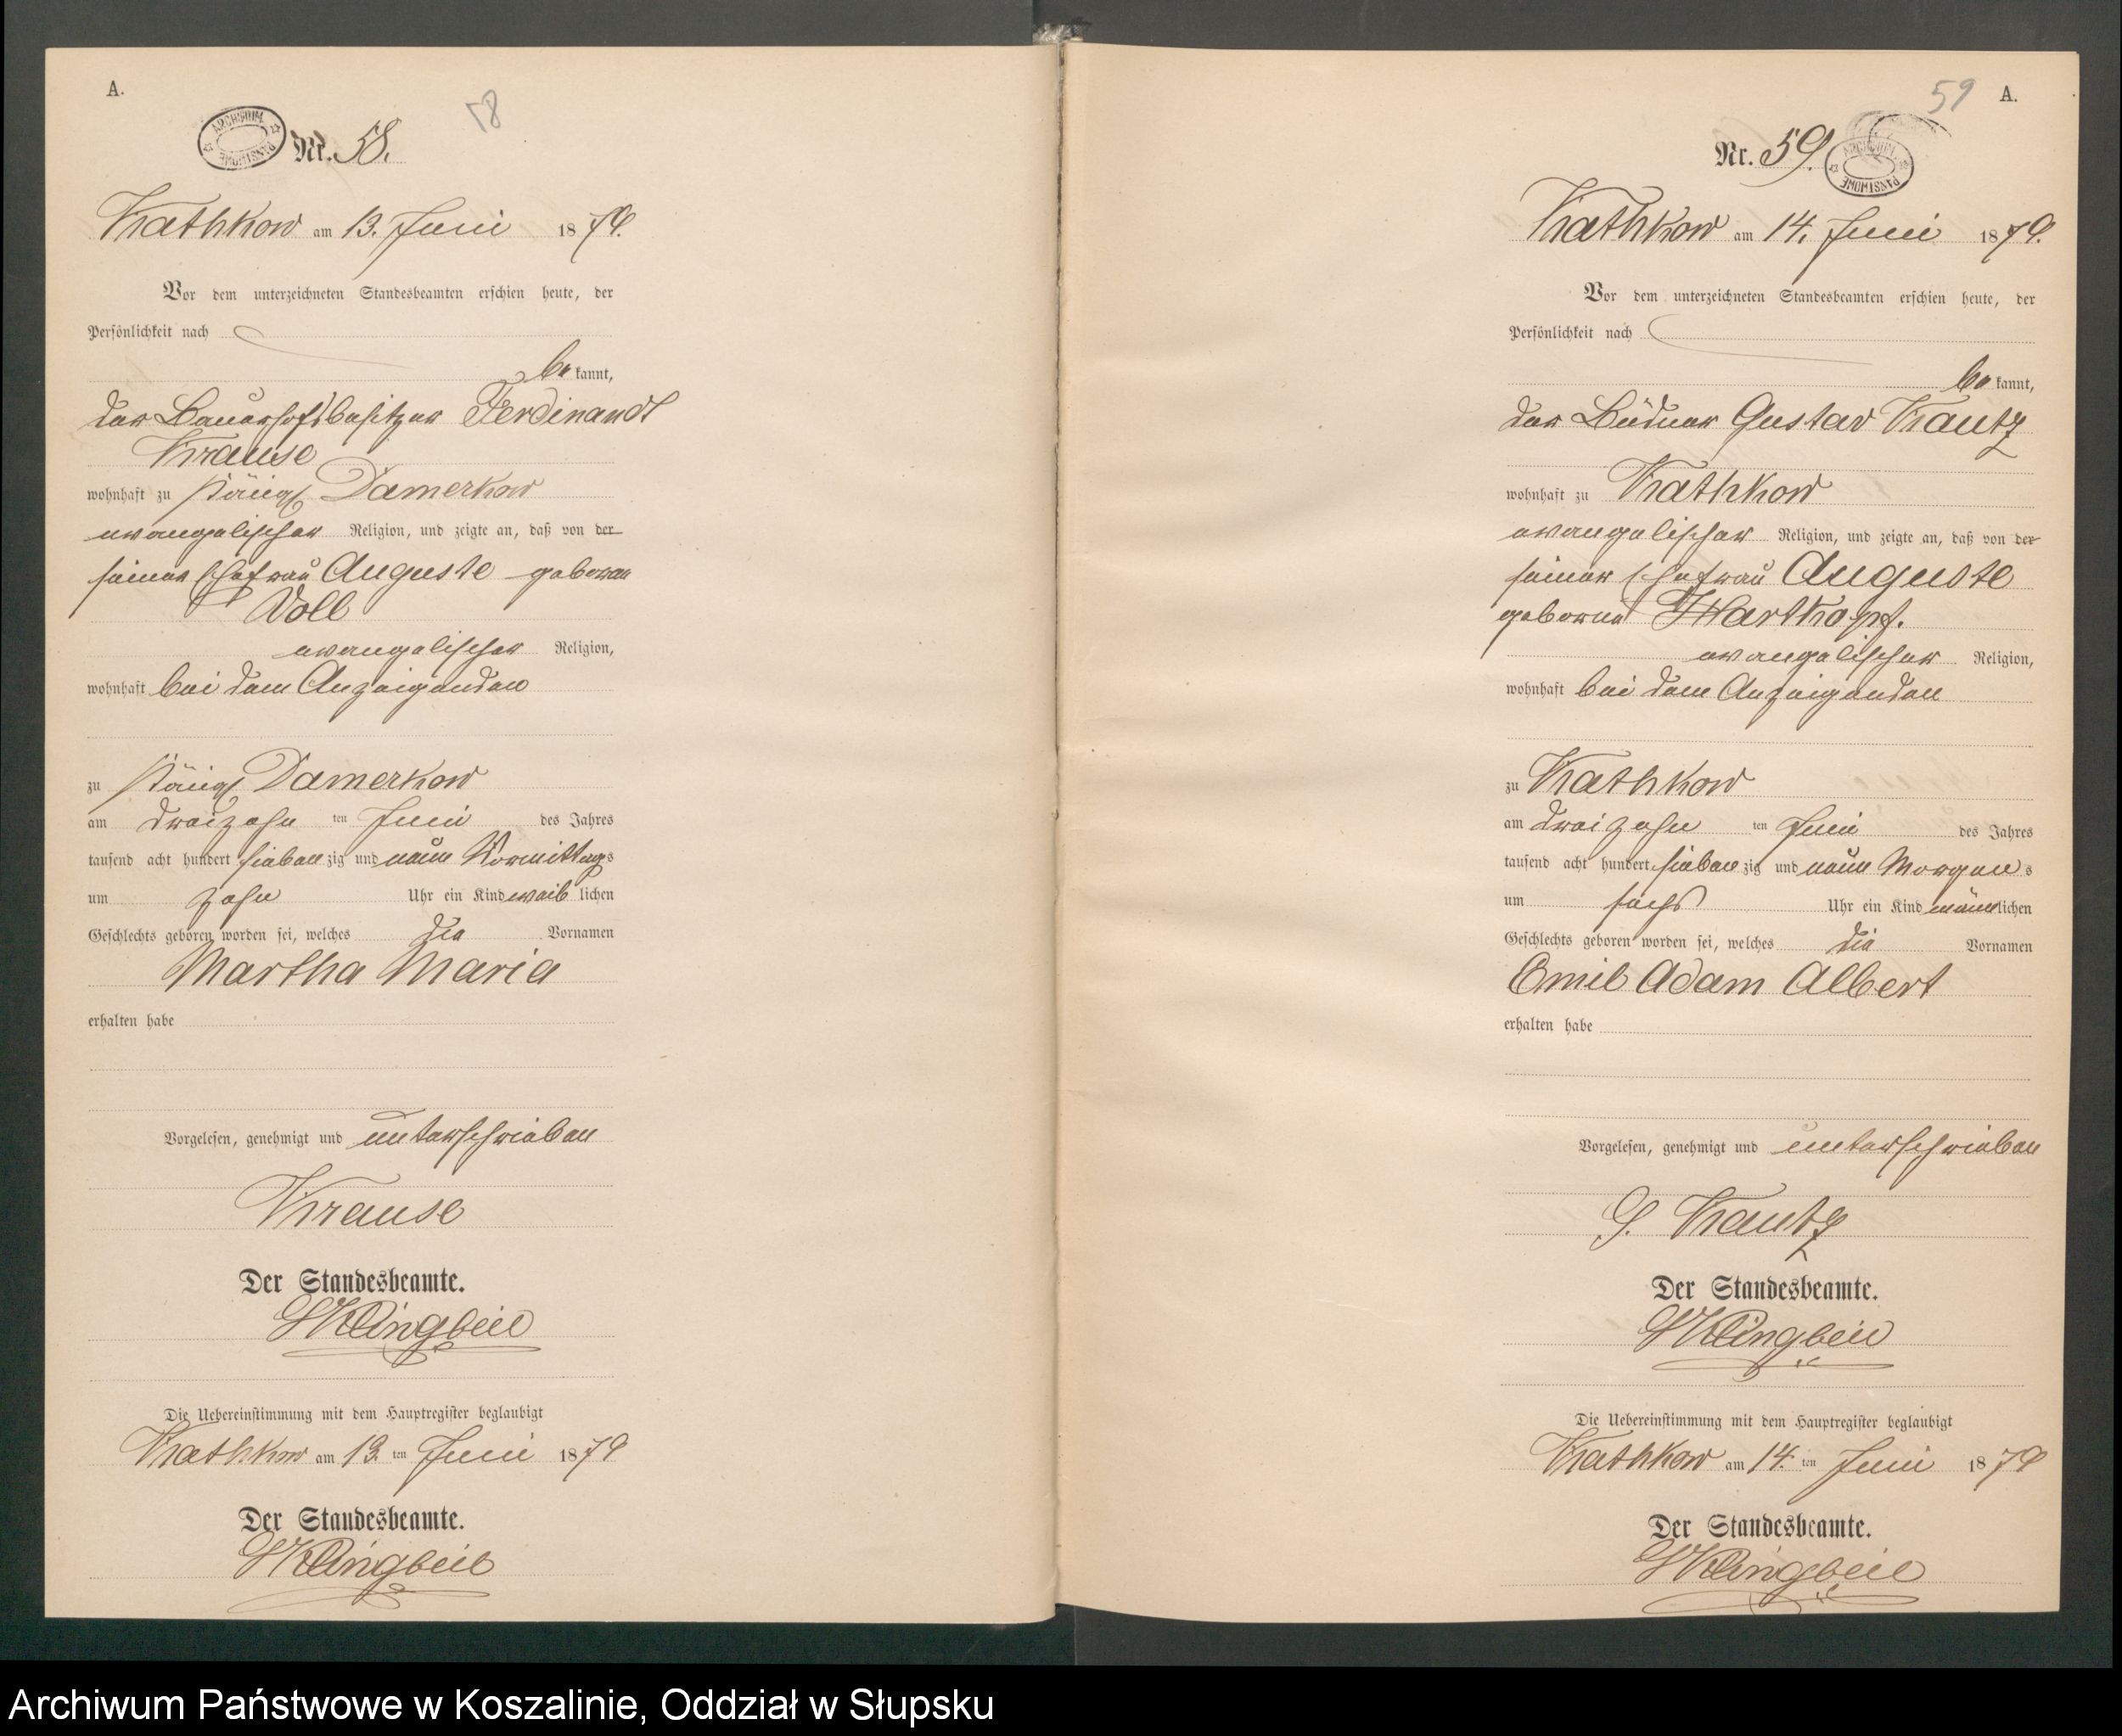 A.
ARCHIWUM PAŃSTWOWE
Nr. 58.
58
Kathkow am 13. Juni 1879.
Vor dem unterzeichneten Standesbeamten erschien heute, der
Persönlichkeit nach
be kannt,
der Bauerhofsbesitzer Ferdinandt
Krause
wohnhaft zu Damerkow
evangelischer Religion, und zeigte an, daß von der
seiner Ehefrau Auguste geboren
Voll
evangelischer Religion,
wohnhaft bei dem Anzeigenden
zu Damerkow
am dreizehn ten Juni des Jahres
tausend acht hundert sieben zig und neun Vormittags
um zehn Uhr ein Kind weib lichen
Geschlechts geboren worden sei, welches die Vornamen
Martha Maria
erhalten habe
Vorgelesen, genehmigt und unterschrieben
Krause
Der Standesbeamte.
Klingbeil
Die Uebereinstimmung mit dem Hauptregister beglaubigt
Kathkow am 13. ten Juni 1879
Der Standesbeamte.
Klingbeil
59
A.
Nr. 59.
ARCHIWUM PAŃSTWOWE
Kathkow am 14. Juni 1879.
Vor dem unterzeichneten Standesbeamten erschien heute, der
Persönlichkeit nach
be kannt,
der Büdner Gustav Kautz
wohnhaft zu Kathkow
evangelischer Religion, und zeigte an, daß von der
seiner Ehefrau Auguste
geborne Hartkopf.
evangelischer Religion,
wohnhaft bei dem Anzeigenden
zu Kathkow
am dreizehn ten Juni des Jahres
tausend acht hundert sieben zig und neun Morgen s
um sechs Uhr ein Kind männ lichen
Geschlechts geboren worden sei, welches die Vornamen
Emil Adam Albert
erhalten habe
Vorgelesen, genehmigt und unterschrieben
G. Kautz
Der Standesbeamte.
Klingbeil
Die Uebereinstimmung mit dem Hauptregister beglaubigt
Kathkow am 14. ten Juni 1879
Der Standesbeamte.
Klingbeil
Archiwum Państwowe w Koszalinie, Oddział w Słupsku